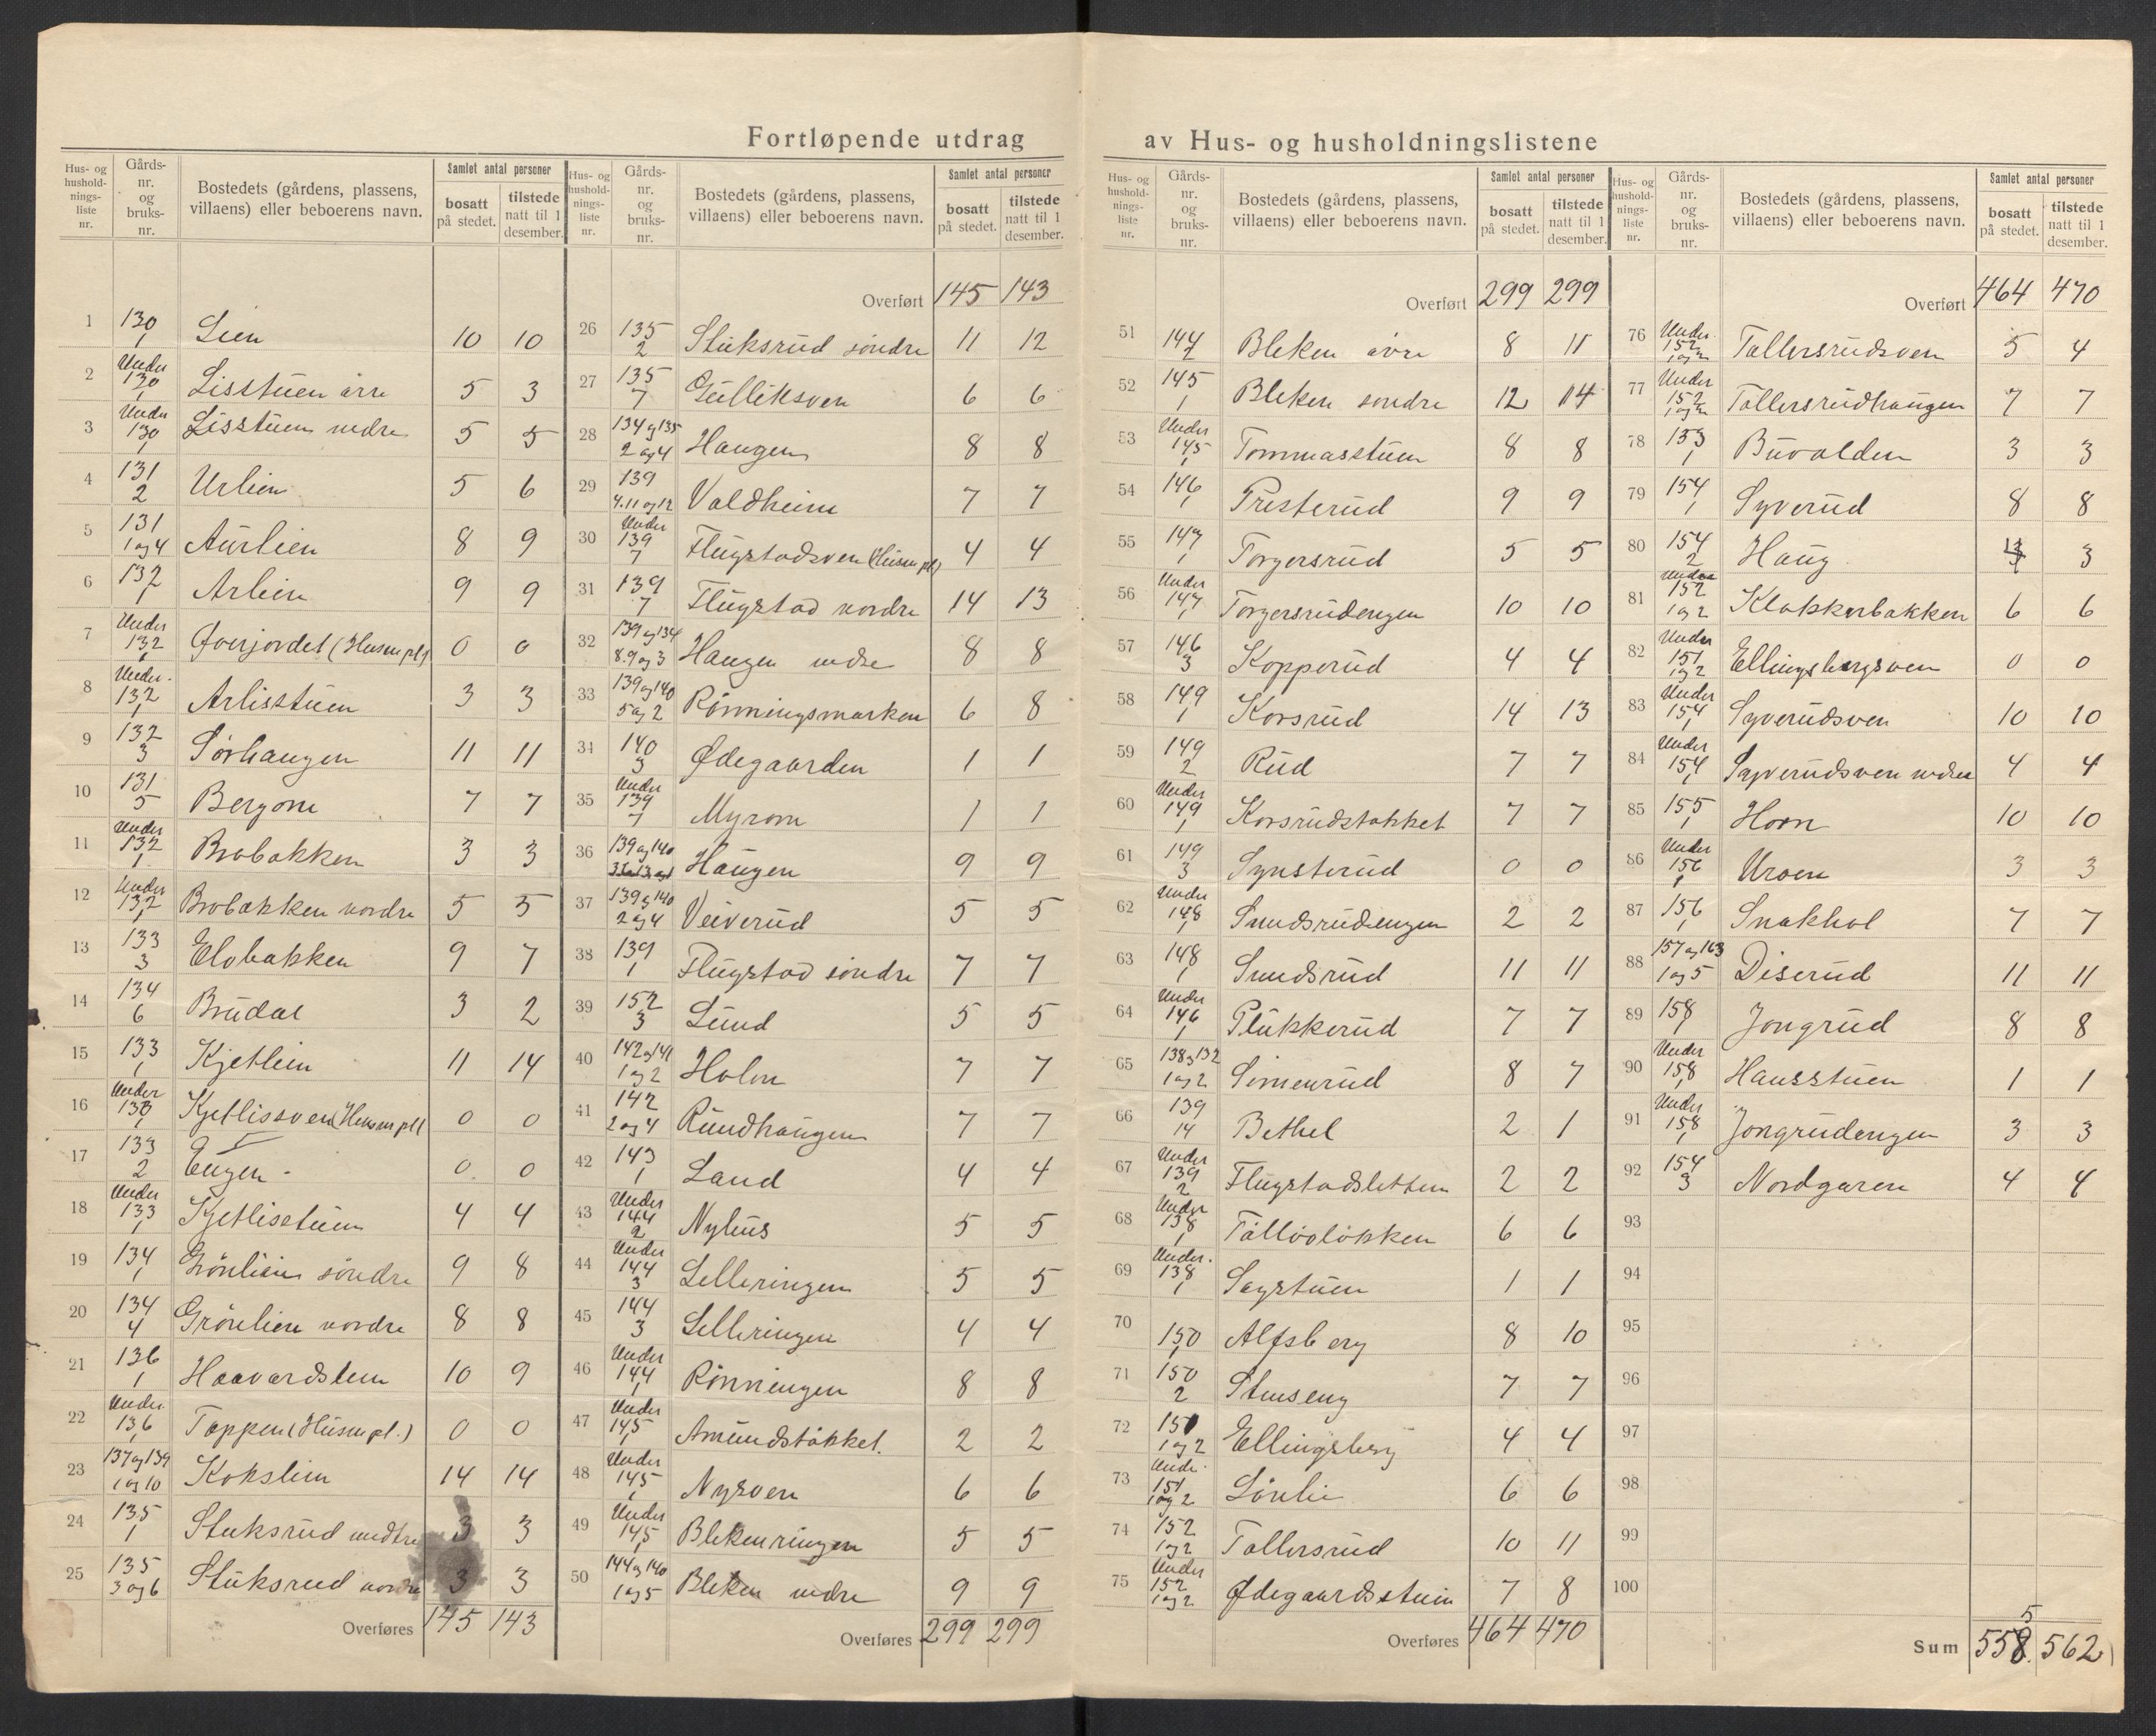 Fortløpende utdrag av Hus- og husholdningslistene
Hus- og husholdningsliste nr. | Gårds- nr. og bruks- nr. | Bostedets (gårdens, plassens, villaens) eller beboerens navn. | Samlet antal personer | bosatt på stedet. | tilstede natt til 1 desember.
1 130/1 Lien 10 10
2 Under 130/1 Lisstuen øvre 5 3
3 Under 130/1 Lisstuen nedre 5 5
4 131/2 Urlien 5 6
5 131/1 og 4 Aurlien 8 9
6 132/1 Arlien 9 9
7 Under 132/1 Øverjordet (Husm.pl) 0 0
8 Under 132/1 Arlisstuen 3 3
9 132/3 Sørhaugen 11 11
10 131/5 Bergom 7 7
11 Under 132/1 Brobakken 3 3
12 Under 132/1 Brobakken nordre 5 5
13 133/3 Elvbakken 9 7
14 134/6 Brudal 3 2
15 133/1 Kjetlien 11 14
16 Under 133/1 Kjetlissven (Husm pl) 0 0
17 133/2 Engen 0 0
18 Under 133/1 Kjetlisstuen 4 4
19 134/1 Grønlien søndre 9 8
20 134/4 Grønlien nordre 8 8
21 136/1 Haavardslien 10 9
22 Under 136/1 Toppen (Husm pl.) 0 0
23 137 og 139/1 og 10 Kokslien 14 14
24 135/1 Stuksrud midtre 3 3
25 135/3 og 6 Stuksrud nordre 3 3
Overføres 145 143
Overført 145 143
26 135/2 Stuksrud søndre 11 12
27 135/7 Gulliksven 6 6
28 134 og 135/2 og 4 Haugen 8 8
29 139/4.11 og 12 Valdheim 7 7
30 Under 139/7 Flugstadsven (Husm pl) 4 4
31 139/7 Flugstad nordre 14 13
32 139 og 134/8.9 og 3 Haugen nedre 8 8
33 139 og 140/5 og 2 Rønningsmarken 6 8
34 140/3 Ødegaarden 1 1
35 Under 139/7 Myrom 1 1
36 139 og 140 Haugen 9 9
37 139 og 140/2 og 4 Veiverud 5 5
38 139/1 Flugstad søndre 7 7
39 152/3 Lund 5 5
40 142 og 141/1 og 2 Holm 7 7
41 142/2 og 4 Rundhaugen 7 7
42 143/1 Land 4 4
43 Under 144/2 Nyhus 5 5
44 Under 144/3 Lilleringen 5 5
45 144/3 Lilleringen 4 4
46 Under 144/1 Rønningen 8 8
47 Under 145/1 Amundstøkket. 2 2
48 Under 145/1 Nysven 6 6
49 Under 145/1 Blekenringen 5 5
50 144 og 140/1 og 5 Bleken nedre 9 9
Overføres 299 299
Overført 299 299
51 144/2 Bleken øvre 8 11
52 145/1 Bleken søndre 12 14
53 Under 145/1 Tommasstuen 8 8
54 146/1 Presterud 9 9
55 147/1 Torgersrud 5 5
56 Under 147/1 Torgersrudengen 10 10
57 146/3 Kopperud 4 4
58 149/1 Korsrud 14 13
59 149/2 Rud 7 7
60 Under 149/1 Korsrudstøkket 7 7
61 149/3 Synsterud 0 0
62 Under 148/1 Sundsrudengen 2 2
63 148/1 Sundsrud 11 11
64 Under 146/1 Plukkerud 7 7
65 138 og 132/1 og 2 Simenrud 8 7
66 139/14 Bethel 2 1
67 Under 139/2 Flugstadsletten 2 2
68 Under 138/1 Tølløvløkken 6 6
69 Under 138/1 Sagstuen 1 1
70 150/1 Alfsberg 8 10
71 150/2 Stenseng 7 7
72 151/1 og 2 Ellingsberg 4 4
73 Under 151/1 og 2 Lønlie 6 6
74 152/1 og 2 Tollersrud 10 11
75 Under 152/1 og 2 Ødegaardsstuen 7 8
Overføres 464 470
Overført 464 470
76 Under 152/1 og 2 Tollersrudsven 5 4
77 Under 152/1 og 2 Tollersrudhaugen 7 7
78 153/1 Buvolden 3 3
79 154/1 Syverud 8 8
80 154/2 Haug 3
81 Under 152/1 og 2 Klokkerbakken 6 6
82 Under 151/1 og 2 Ellingsbergsven 0 0
83 Under 154/1 Syverudsven 10 10
84 Under 154/1 Syverudsven nedre 4 4
85 155/1 Horn 10 10
86 Under 156/1 Uroen 3 3
87 156/1 Snekhol 7 7
88 157 og 163/1 og 5 Diserud 11 11
89 158/1 Jongrud 8 8
90 Under 158/1 Hansstuen 1 1
91 Under 158/1 Jongrudengen 3 3
92 154/3 Nordgaren 4 4
93
94
95
96
97
98
99
100
5
Sum 558. 562